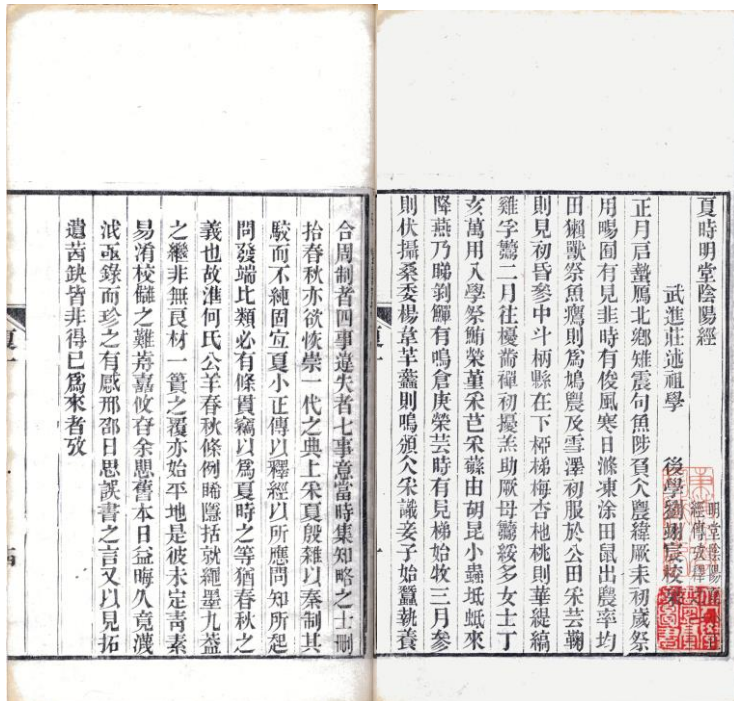 夏時明堂陰陽經
武進莊述祖學 後學劉翊宸校栞
正月启蟄鴈北鄉雉震句魚陟負仌農緯厥耒初歲祭
用暢囿有見韭時有俊風寒日滌凍涂田鼠出農率均
田獺獸祭魚鷹則爲鳩農及雪澤初服於公田采芸鞠
則見初昏參中斗柄縣在下桺梯梅杏杝桃則華緹縞
雞孚鬻二月往耰黍襌初擾羔助厥母鬻綏多女士丁
亥萬用入學祭鮪榮堇采芑采蘩由胡昆小蟲坻蚳來
降燕乃睇剝鱓有鳴倉庚榮芸時有見梯始收三月參
則伏攝桑委楊則鳴頒仌采識妾子始蠶執養
合周制者四事違失者七事意當時集知略之士刪
拾春秋亦欲恢崇一代之典上采夏殷雜以秦制其
駮而不純固宜夏小正傳以釋經以所應問知所起
問發端比類必有條貫竊以爲夏時之等猶春秋之
義也故準何氏公羊春秋條例睎隱括就繩墨九
之繼非無良材一簣之覆亦始平地是彼未定青素
易淆校讎之難嘉攸存余思舊本日益晦久竟漫
亟錄而珍之有感邢邵日思誤書之言又以見拓
遺鈌皆非得已爲來者攷